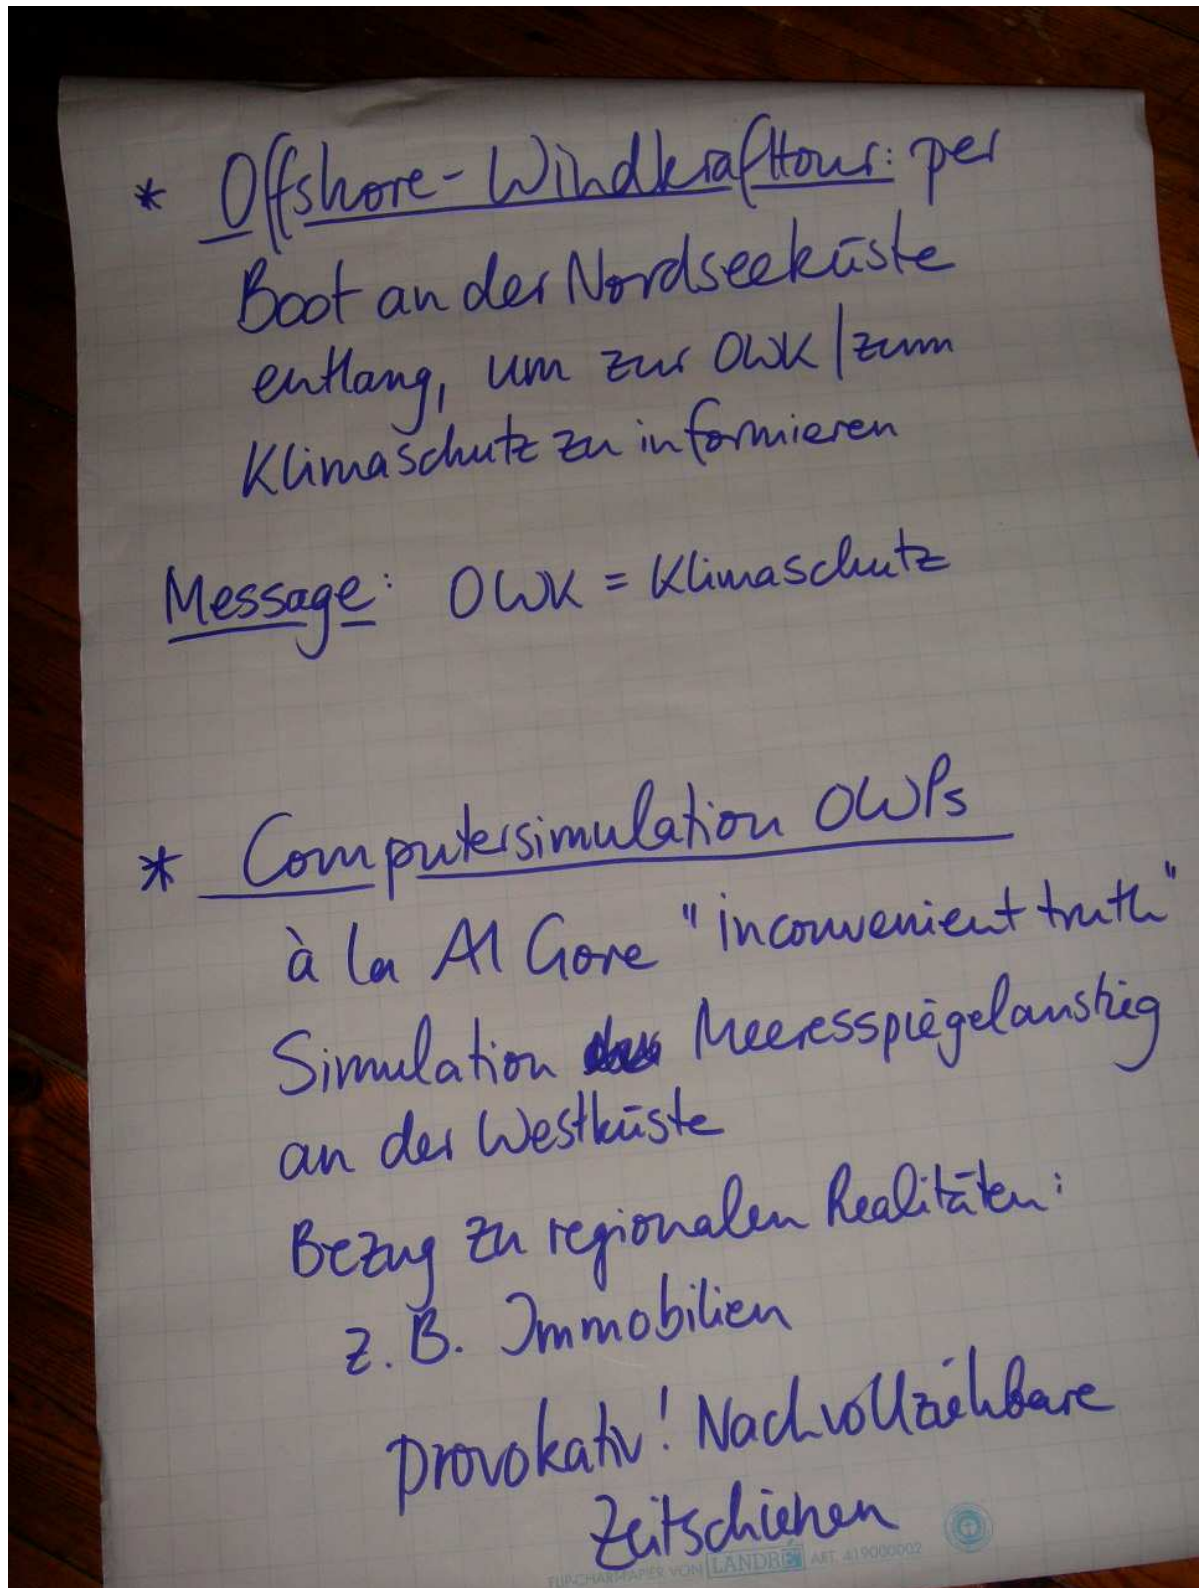 * Offshore-Windkrafttour: per
Boot an der Nordseeküste
entlang, um zur OWK / zum
Klimaschutz zu informieren
Message: OWK = Klimaschutz
* Computersimulation OWPs
à la Al Gore "inconvenient truth"
Simulation Meeresspiegelanstieg
an der Westküste
Bezug zu regionalen Realitäten:
z.B. Immobilien
provokativ! Nachvollziehbare
Zeitschienen
FLIPCHARTPAPIER VON LANDRÉ ART. 419000002